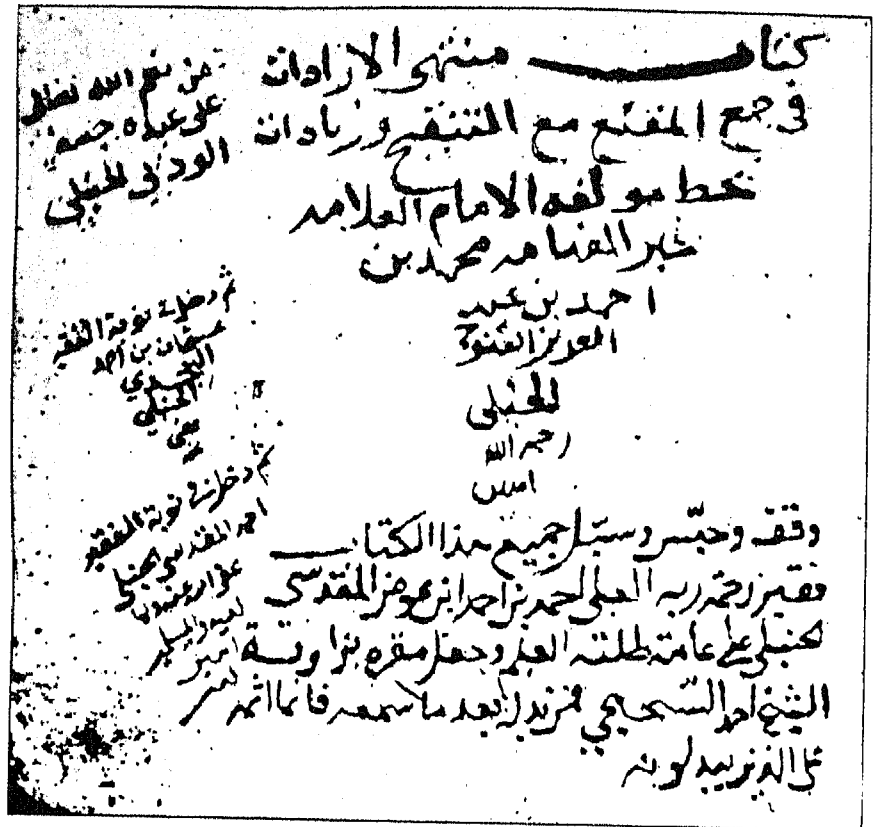 كتاب منتهى الارادات
في جمع المقنع مع التنقيح وزيادات
بخط مولفه الامام العلامه
محمد بن
احمد بن عبد
العزيز الفتوحي
الحنبلي
رحمه الله
امين
وقف وحبس وسبل جميع هذا الكتاب
فقير رحمة ربه العلي احمد بن احمد ابن عوض المقدسي
الحنبلي على عامة طلبته العلم وجعل مقره بزاوية
الشيخ احمد السحيمي فمن بدله بعد ما سمعه فانما اثمه
على الذين يبدلونه
من نعم الله تعالى
على عبده
الحنبلي
ثم دخل في نوبة الفقير
عثمان بن احمد
النجدي
الحنبلي
عفي
عنه
ثم دخل في نوبة الفقير
احمد المقدسي الحنبلي